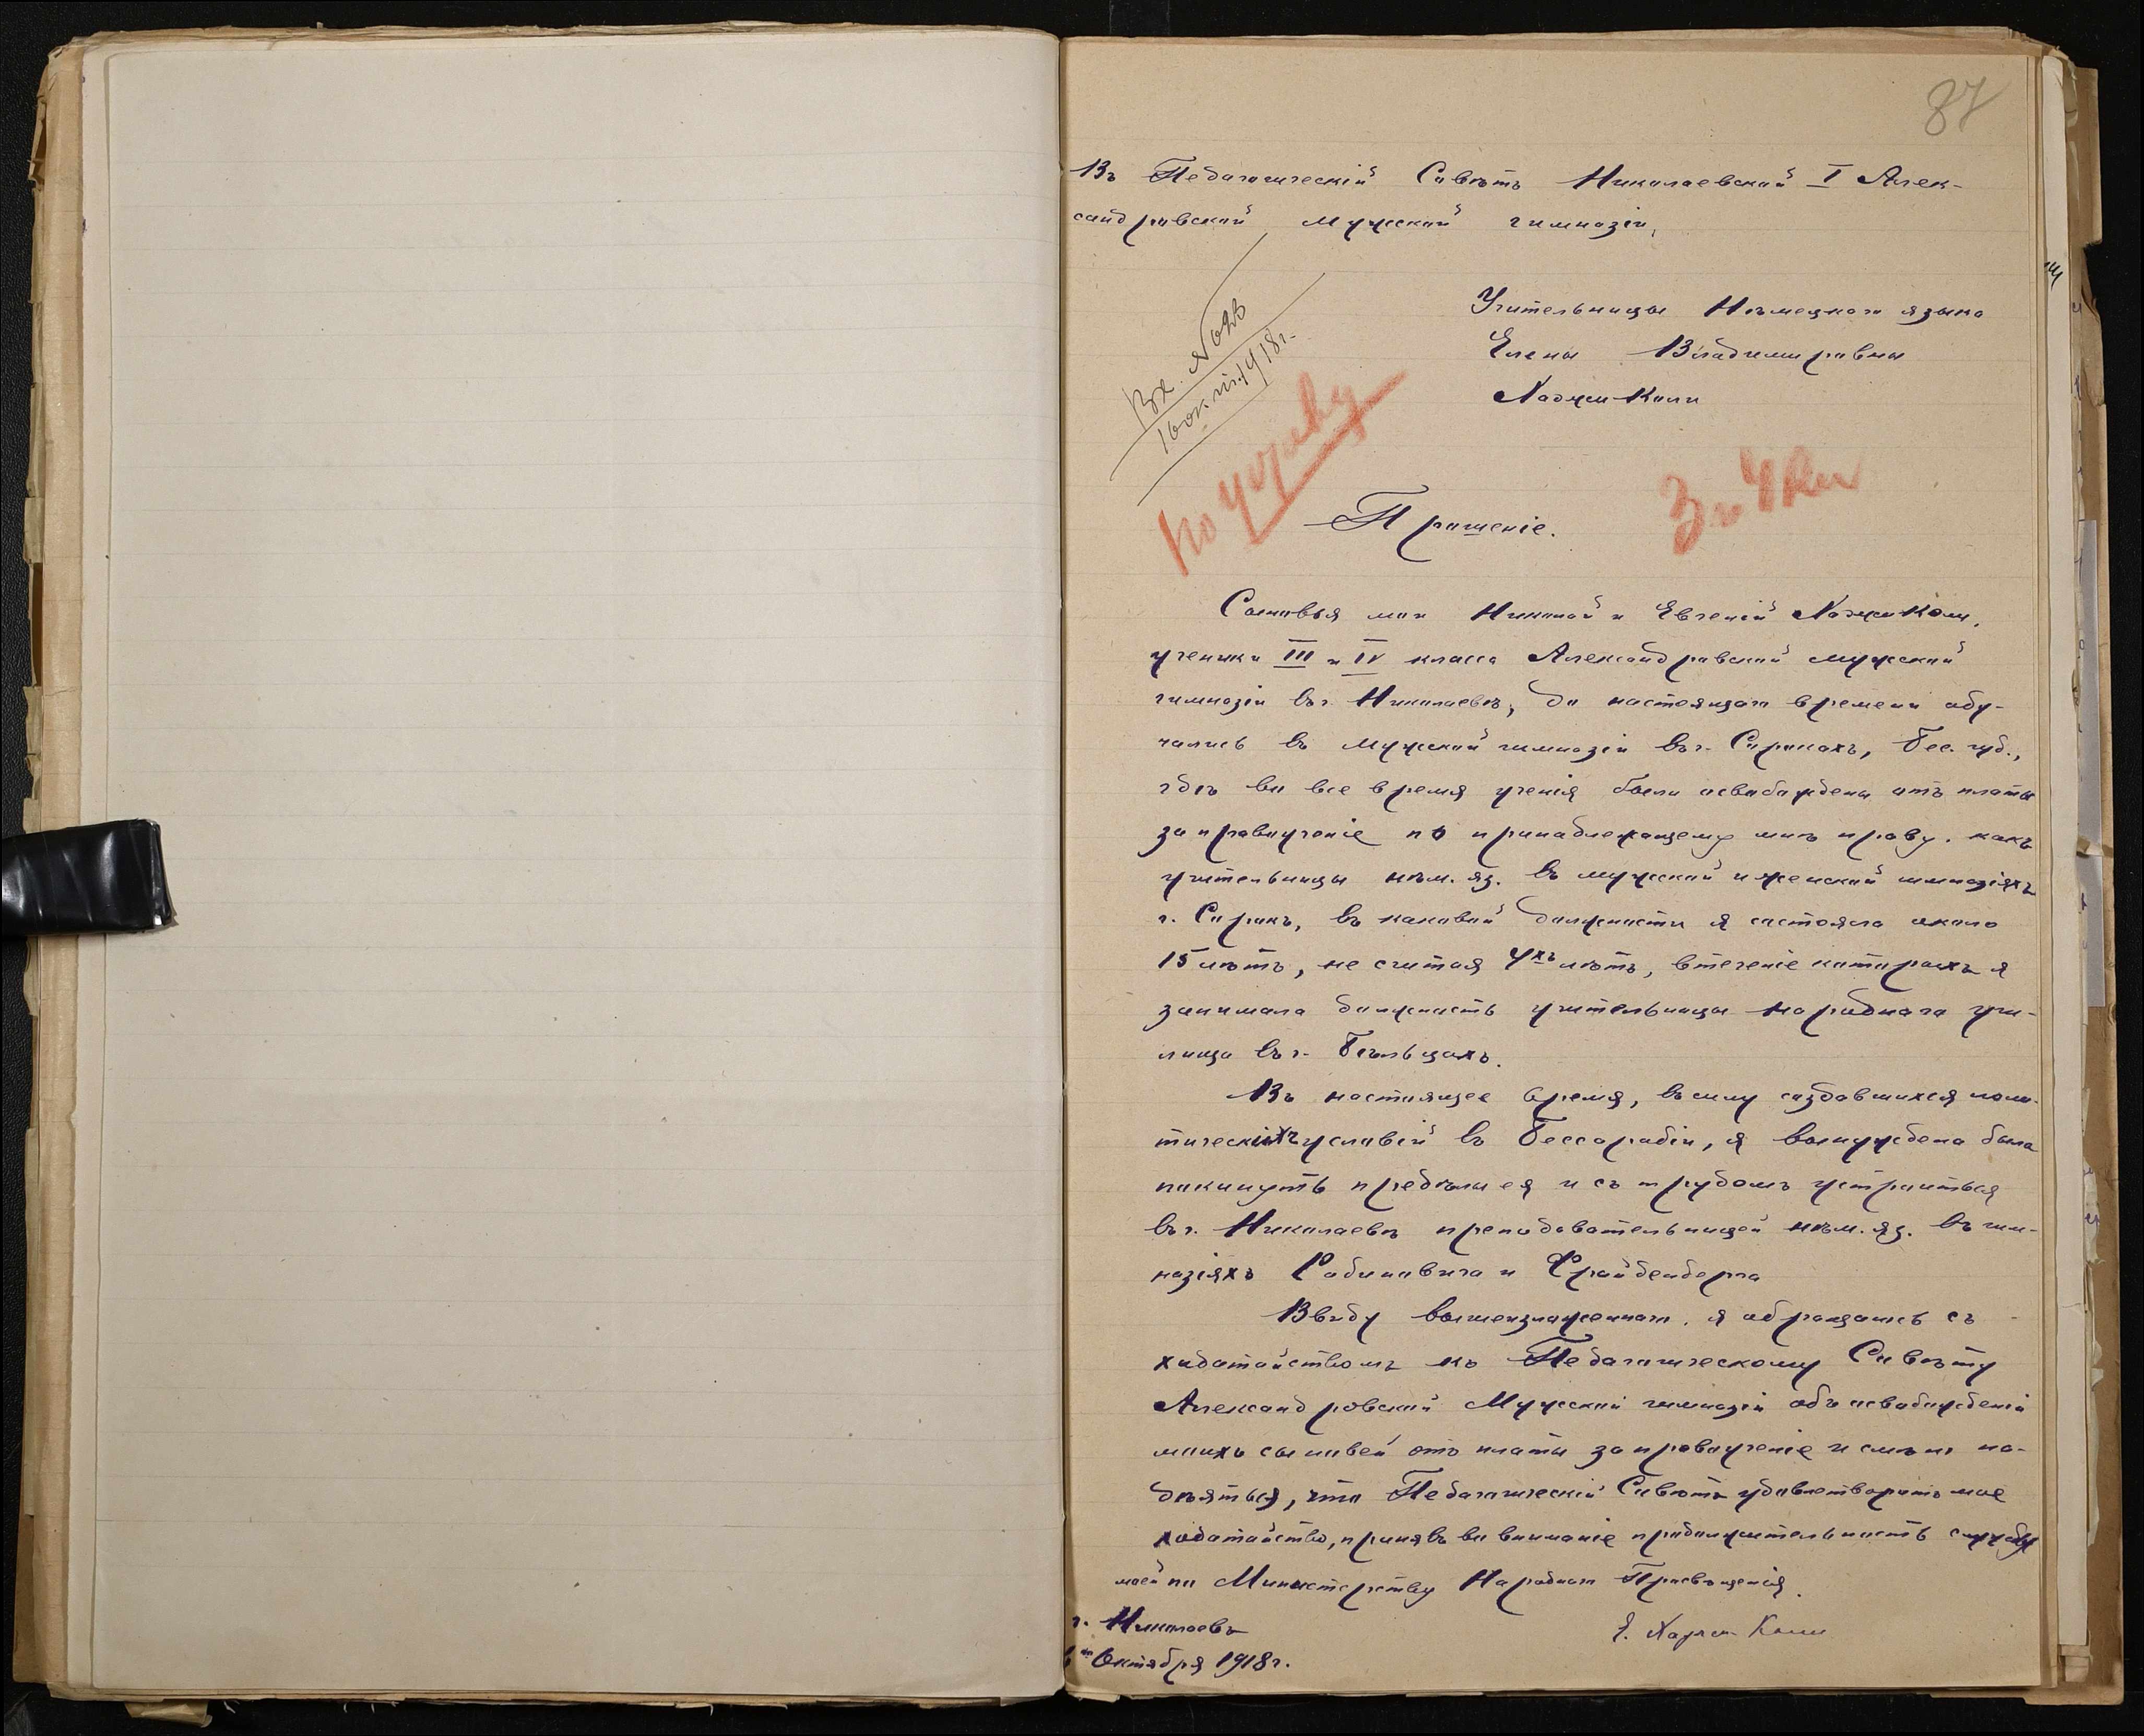 87
Въ Педагогическій Совѣтъ Николаевской I Алек-
сандровской мужской гимназіи,
Учительницы Нѣмецкаго языка
Елены Владимировны
Хаджи-Коли
Вх. №
16 окт. 1918 г.
Прошеніе.
Сыновья мои Николай и Евгеній Хаджи Коли,
ученики III и IV класса Александровской мужской
гимназіи въ г. Николаевѣ, до настоящаго времени обу-
чались въ мужской гимназіи въ г. Сорокахъ, Бес. губ.,
гдѣ во все время ученія были освобождены отъ платы
за правоученіе по принадлежащему мнѣ праву, какъ
учительницы нѣм. яз. въ мужской и женской гимназіяхъ
г. Сорокъ, въ каковой должности я состояла около
15 лѣтъ, не считая 4хъ лѣтъ, втеченіе которыхъ я
занимала должность учительницы народнаго учи-
лища въ г. Бѣльцахъ.
Въ настоящее время, въ силу создавшихся поли-
тическихъ условій въ Бессарабіи, я вынуждена была
покинуть предѣлы ея и съ трудомъ устроиться
въ г. Николаевѣ преподавательницей нѣм. яз. въ гим-
назіяхъ Рабиновича и Фрайденберга
Ввиду вышеизложеннаго, я обращаюсь съ
ходатайствомъ къ Педагогическому Совѣту
Александровской Мужской гимназіи объ освобожденіи
моихъ сыновей отъ платы за правоученіе и смѣю на-
дѣяться, что Педагогическій Совѣтъ удовлетворитъ мое
ходатайство, принявъ во вниманіе продолжительность службы
моей по Министерству Народнаго Просвѣщенія.
г. Николаевъ
Е. Хаджи Коли
Октября 1918 г.